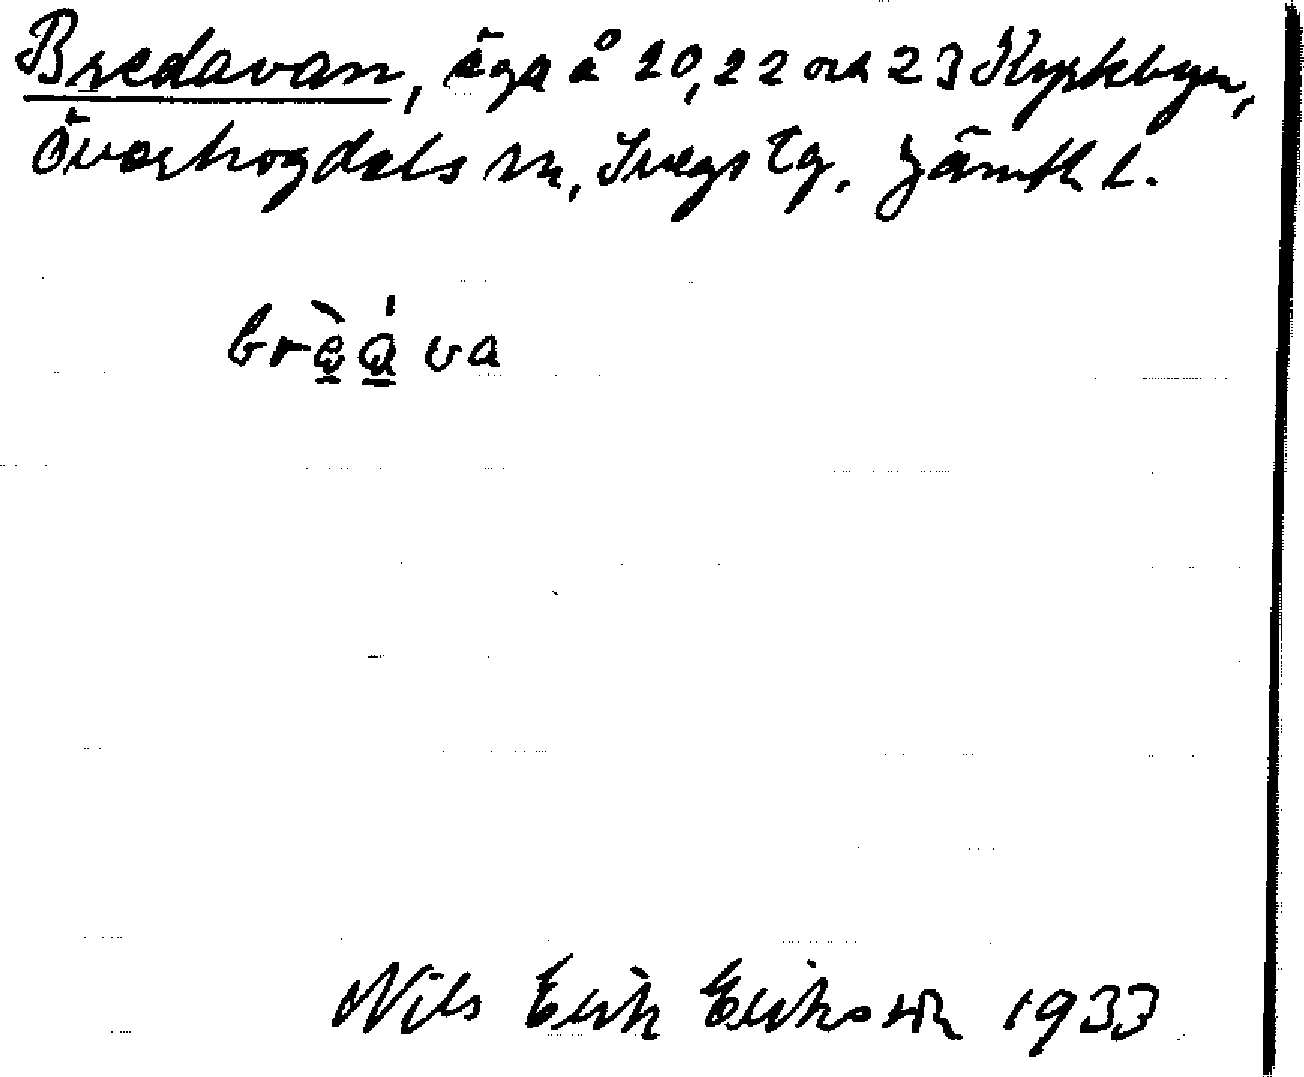 Bredavan, äga å 20, 22 och 23 Kyrkbyn,
Överhogdals sn, Svegs tg. Jämtl. l.
brèáva
Nils Erik Eriksson 1933